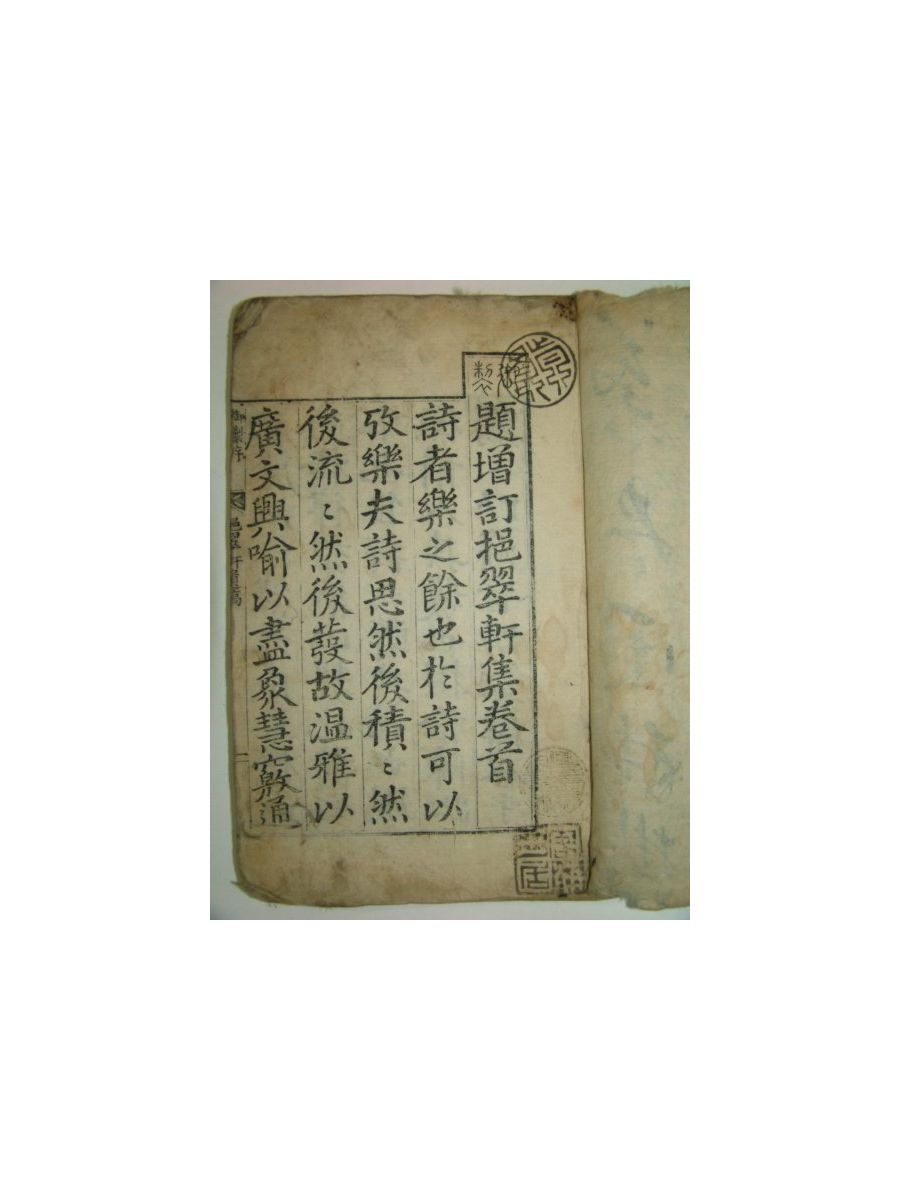 御製
題增訂挹翠軒集卷首
詩者樂之餘也於詩可以
攷樂夫詩思然後積〻然
後流〻然後發故溫雅以
廣文興喻以盡象慧竅通
御製序
挹翠軒遺稿